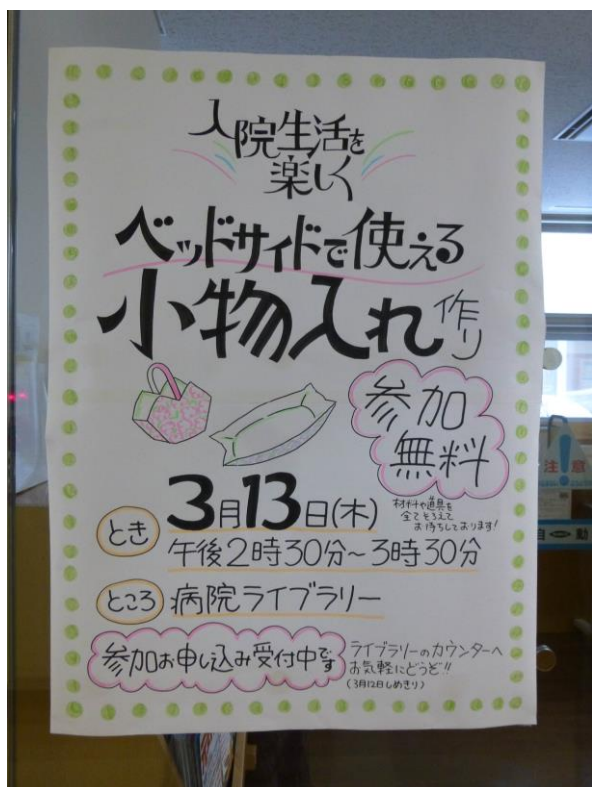 入院生活を
楽しく
ベッドサイドで使える
小物入れ作り
参加
無料
材料や道具を
全てそろえて
お待ちしております!
とき
3月13日(木)
午後2時30分~3時30分
ところ
病院ライブラリー
参加お申し込み受付中です
ライブラリーのカウンターへ
お気軽にどうぞ!!
(3月12日しめきり)
注意
自動